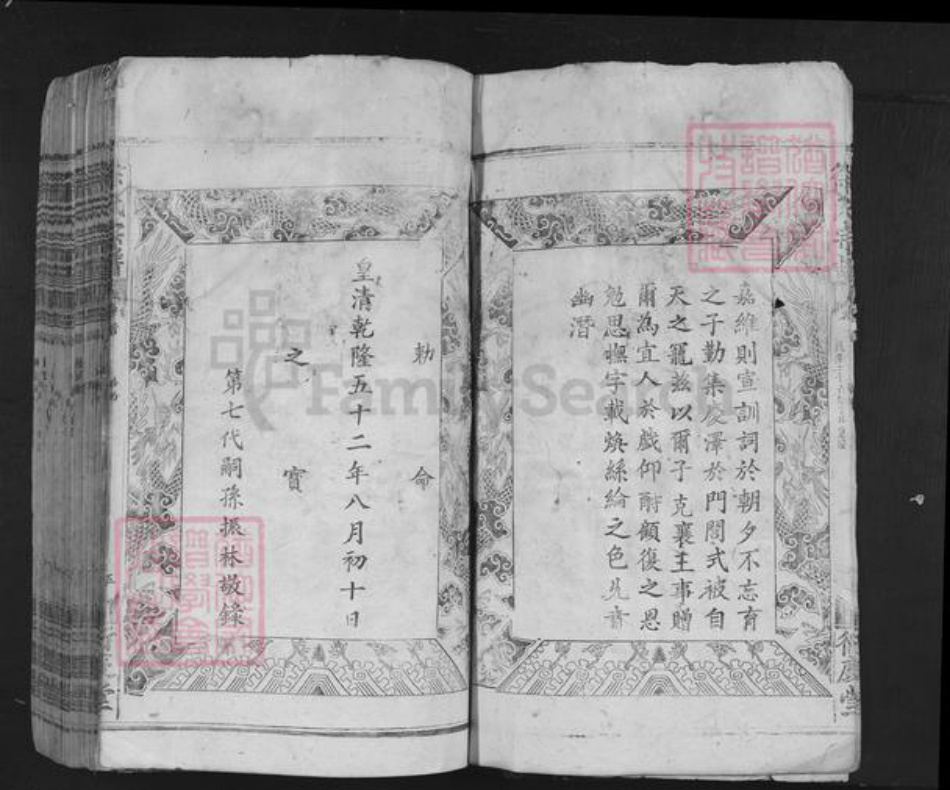 嘉維則宣訓詞於朝夕不忘育
之子勤集後澤於門閭式被自
天之寵茲以爾子克襄王事贈
爾為宜人於戲仰酧顧復之恩
勉思撫字載煥絲綸之色允賁
幽潛
勅命
之寶
皇清乾隆五十二年八月初十日
第七代嗣孫振林敬錄
FamilySearch